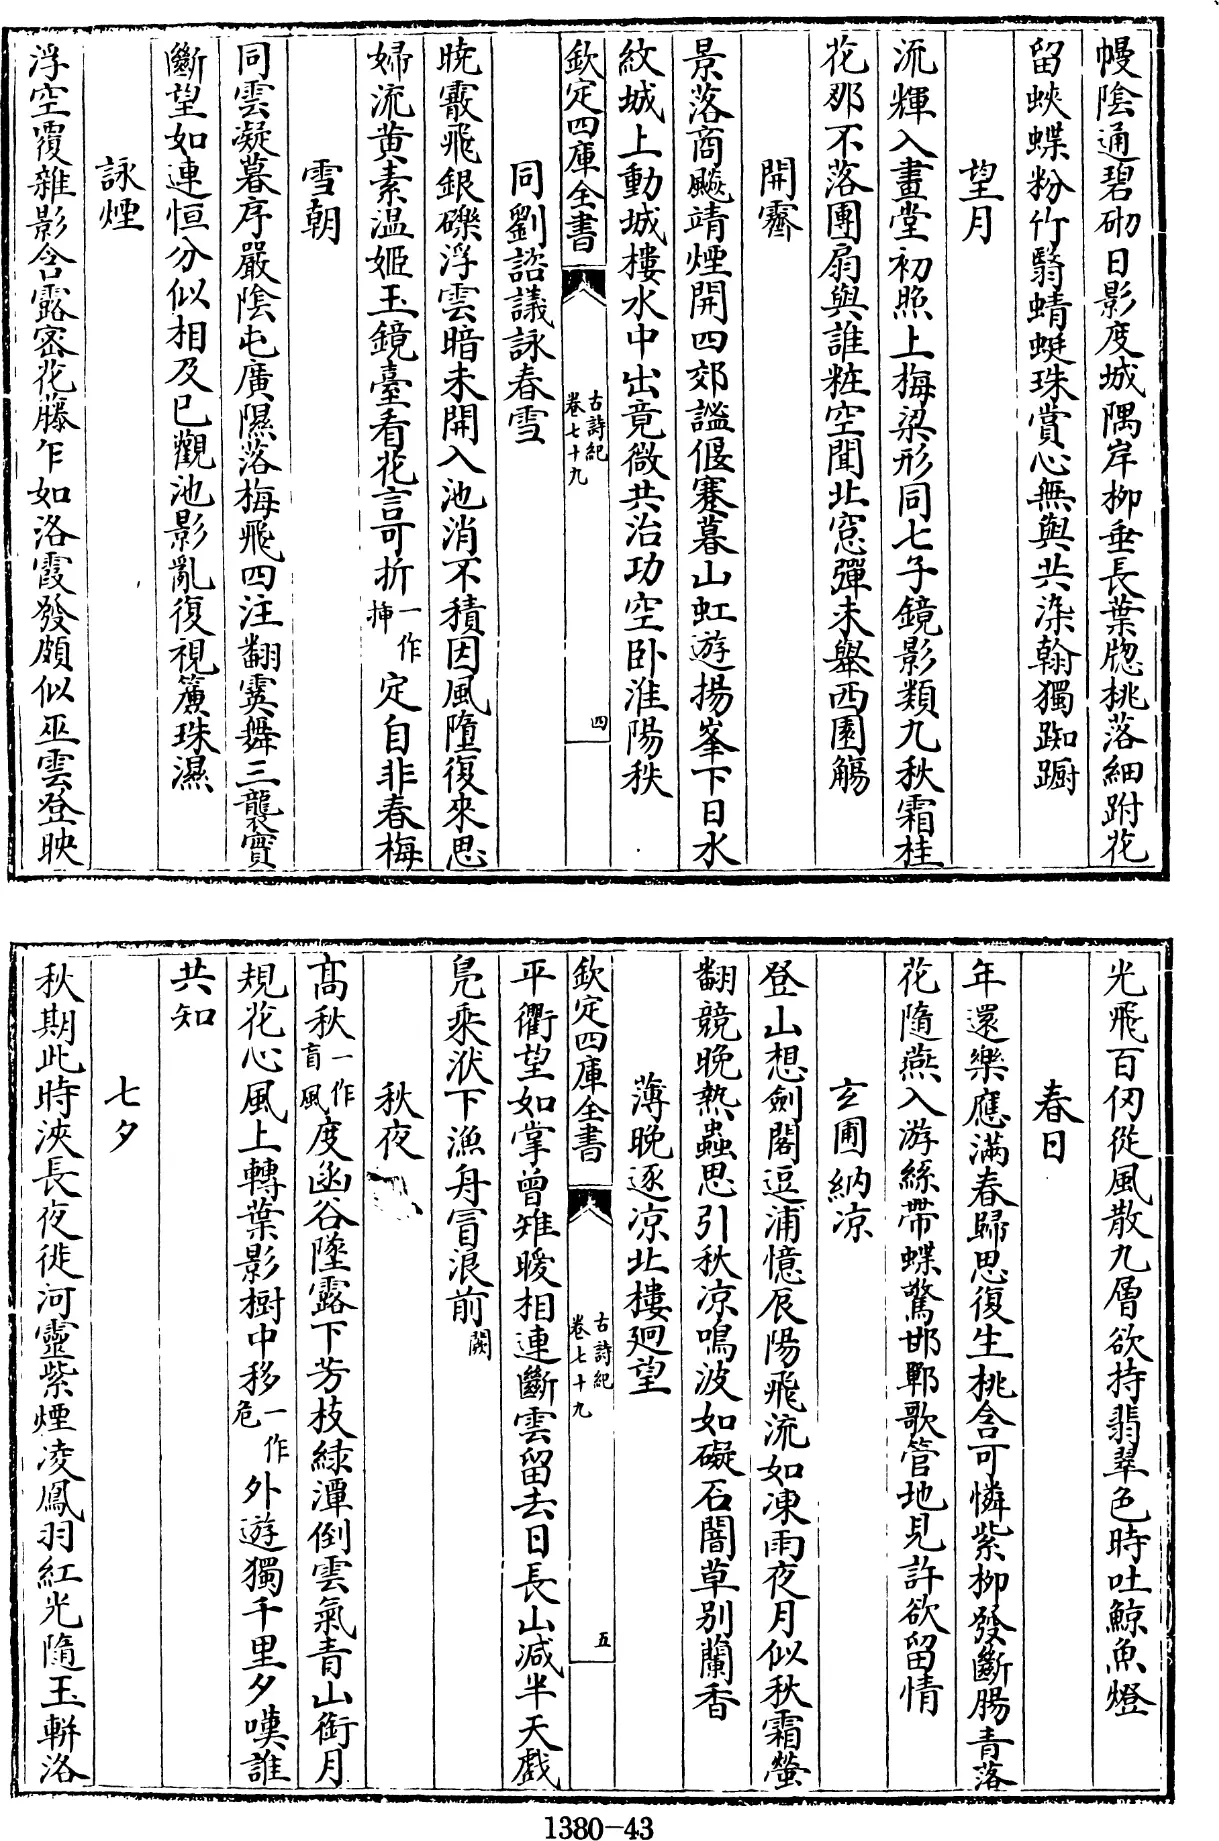 幔陰通碧砌日影度城隅岸柳垂長葉牕桃落細跗花
留蛺蝶粉竹翳蜻蜓珠賞心無與共染翰獨踟蹰
望月
流輝入畫堂初照上梅梁形同七子鏡影類九秋霜桂
花那不落團扇與誰粧空聞北窓彈未舉西園觴
開霽
景落商飈靖煙開四郊謐偃蹇暮山虹遊揚峯下日水
紋城上動城樓水中出竟微共治功空卧淮陽秩
欽定四庫全書
古詩紀
卷七十九
四
同劉諮議詠春雪
晚霰飛銀礫浮雲暗未開入池消不積因風墮復來思
婦流黄素温姬玉鏡臺看花言可折一作揷定自非春梅
雪朝
同雲凝暮序嚴陰屯廣隰落梅飛四注翻霙舞三襲實
斷望如連恒分似相及已觀池影亂復視簾珠濕
詠煙
浮空覆雜影含露密花藤乍如洛霞發頗似巫雲登映
光飛百仞從風散九層欲持翡翠色時吐鯨魚燈
春日
年還樂應滿春歸思復生桃含可憐紫柳發斷腸青落
花隨燕入游絲帶蝶驚邯鄲歌管地見許欲留情
玄圃納凉
登山想劍閣逗浦憶辰陽飛流如凍雨夜月似秋霜螢
翻競晚熱蟲思引秋凉鳴波如礙石闇草别蘭香
薄晚逐凉北樓迴望
欽定四庫全書
古詩紀
卷七十九
五
平衢望如掌曾雉曖相連斷雲留去日長山減半天戲
鳧乘洑下漁舟冒浪前闕
秋夜
髙秋一作盲風度函谷墜露下芳枝緑潭倒雲氣青山銜月
規花心風上轉葉影樹中移一作危外遊獨千里夕嘆誰
共知
七夕
秋期此時浹長夜徙河靈紫煙凌鳳羽紅光隨玉軿洛
1380-43